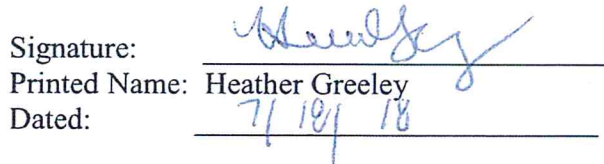 Signature:
Printed Name: Heather Greeley
Dated: 7/18/18